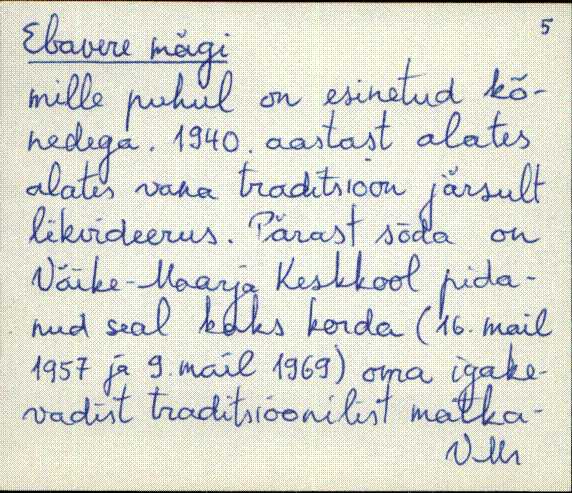 5
Ebavere mägi
mille puhul on esinetud kõ-
nedega. 1940. aastast alates
alates vana traditsioon järsult
likvideerus. Pärast sõda on
Väike-Maarja Keskkool pida-
nud seal kaks korda (16. mail
1957 ja 9. mail 1969) oma igake-
vadist traditsioonilist matka-